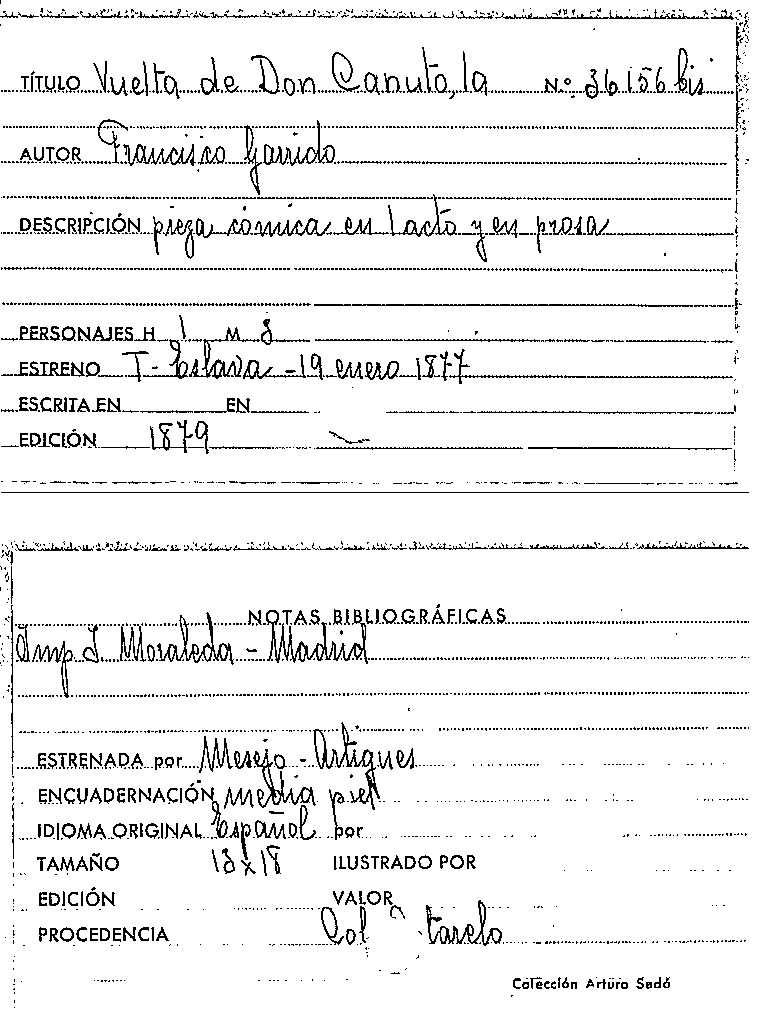 TÍTULO Vuelta de Don Canuto, la Nº 36156 bis
AUTOR Francisco Garrido
DESCRIPCIÓN pieza cómica en 1 acto y en prosa
PERSONAJES H 1 M 3
ESTRENO T- Eslava - 19 enero 1877
ESCRITA EN EN
EDICIÓN 1879
NOTAS BIBLIOGRÁFICAS
Imp J. Moraleda - Madrid
ESTRENADA por Mesejo - Artigues
ENCUADERNACIÓN media piel
IDIOMA ORIGINAL Español por
TAMAÑO 13 x 18 ILUSTRADO POR
EDICIÓN VALOR
PROCEDENCIA Col Cotarelo
Colección Arturo Sedó